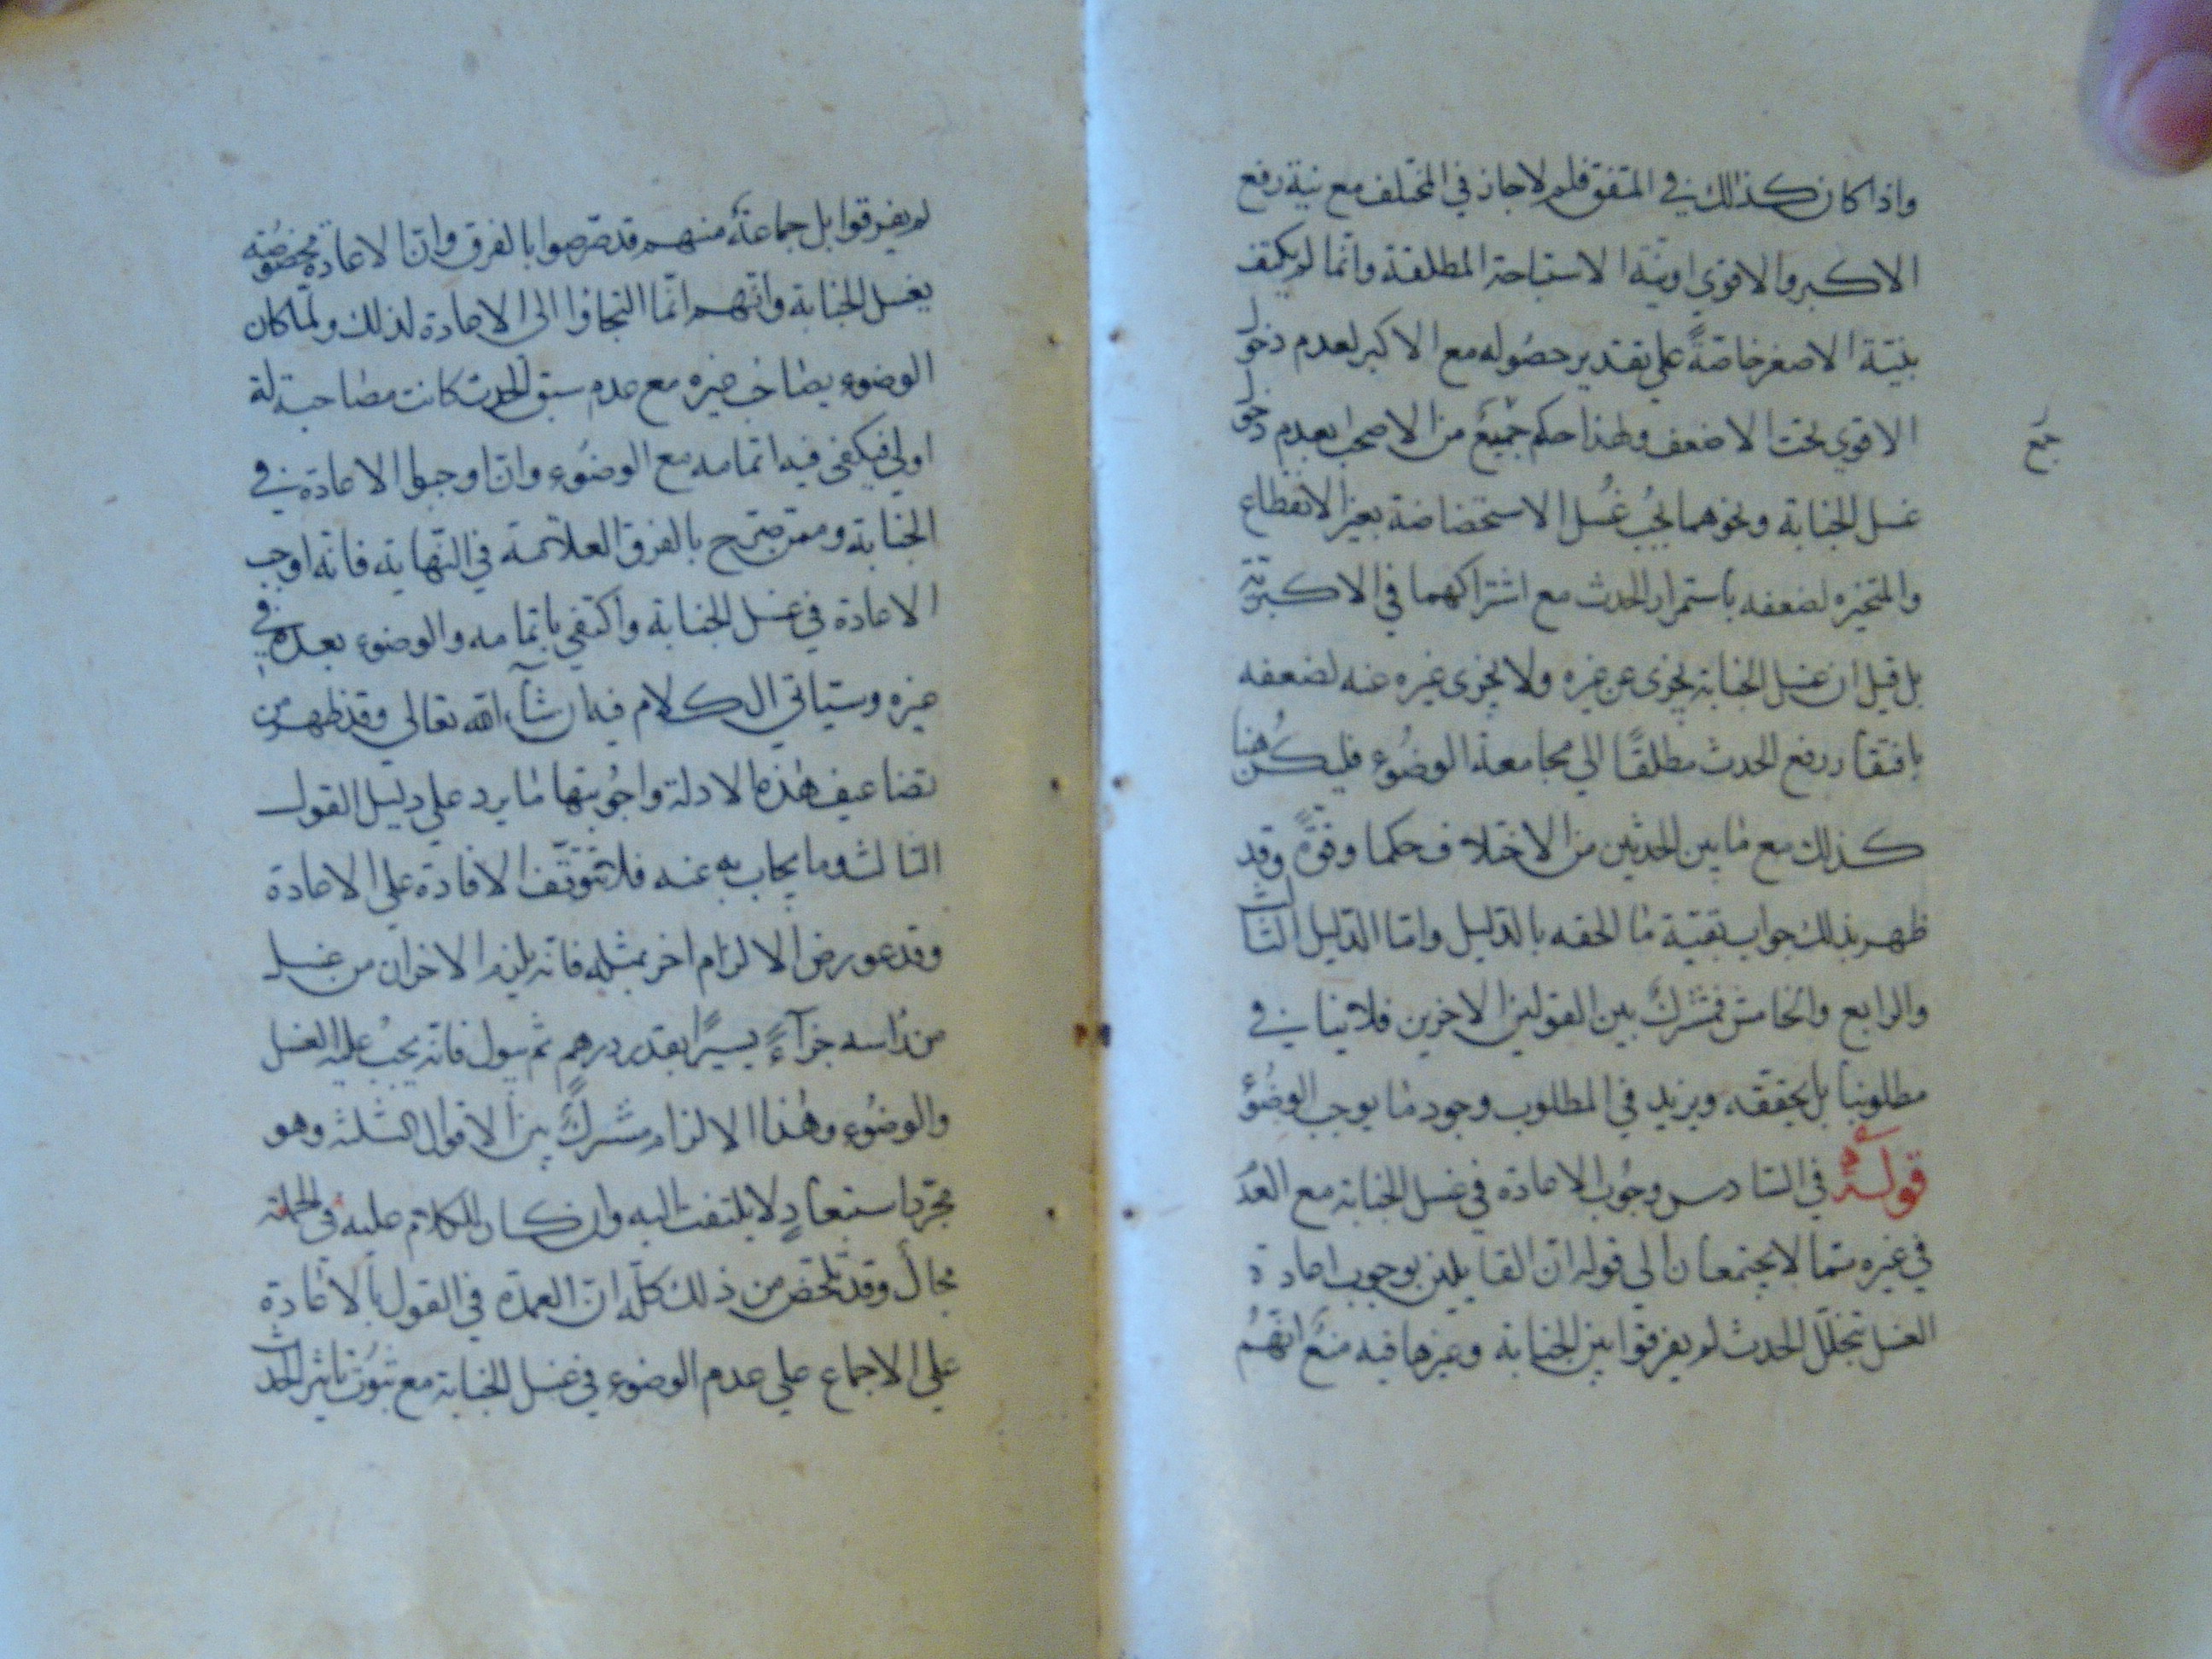 واذا كان كذلك في المتفق فلم لا جاز في المختلف مع نية رفع
الاكبر والاقوي او نية الاستباحة المطلقة وانما لم يكتف
بنية الاصغر خاصةً علي تقدير حصوله مع الاكبر لعدم دخول
الاقوي تحت الاضعف ولهذا حكم جميع من الاصحاب بعدم دخول
جمع
غسل الجنابة ونحوها تحت غُسل الاستحاضة بغير الانقطاع
والمتحيره لضعفه باستمرار الحدث مع اشتراكهما في الاكبرية
بل قيل ان غسل الجنابة يجزى عن غيره ولا يجزى غيره عنه لضعفه
بافتقار رفع الحدث مطلقًا الي مجامعة الوضوء فليكن هنا
كذلك مع ما بين الحدثين من الاختلاف حكما وقوةً وقد
ظهر بذلك جواب بقية ما الحقه بالدليل واما الدليل الثالث
والرابع والخامس فمشترك بين القولين الاخرين فلا ينا في
مطلوبنا بل يحققه ويزيد في المطلوب وجود ما يوجب الوضوء
قوله في السادس وجوب الاعادة في غسل الجنابة مع العدم
في غيره مما لا يجتمعان الي قوله ان القايلين بوجوب اعادة
الغسل بتخلل الحدث لم يفرقوا بين الجنابة وغيرها فيه منع انهم
لم يفرقوا بل جماعة منهم قد صرحوا بالفرق وان الاعادة مخصوصة
بغسل الجنابة وانهم انما التجاوا الى الاعادة لذلك ولما كان
الوضوء يصاحب غيره مع عدم سبق الحدث كانت مصاحبة له
اولي فيكفي فيه اتمامه مع الوضوء وان اوجبوا الاعادة في
الجنابة وممن صرح بالفرق العلامة في النهاية فانه اوجب
الاعادة في غسل الجنابة واكتفي باتمامه والوضوء بعده في
غيره وسياتي الكلام فيه ان شآء الله تعالي وقد ظهر من
تضاعيف هذه الادلة واجوبتها ما يرد علي دليل القول
الثالث وما يجاب به عنه فلا تتوقف الافادة علي الاعادة
وقد عورض الالزام اخر بمثله فانه يلزم الاخران من غسل
من راسه جزآءً يسيرًا بقدر درهم ثم يبول فانه يجب عليه الغسل
والوضوء وهذا الالزام مشترك بين الاقوال الثلثة وهو
مجرد استبعادٍ لا يلتفت اليه وان كان للكلام عليه في الجملة
مجال وقد تلخص من ذلك كله ان العمدة في القول بالاعادة
علي الاجماع علي عدم الوضوء في غسل الجنابة مع ثبوت تاثير الحدث